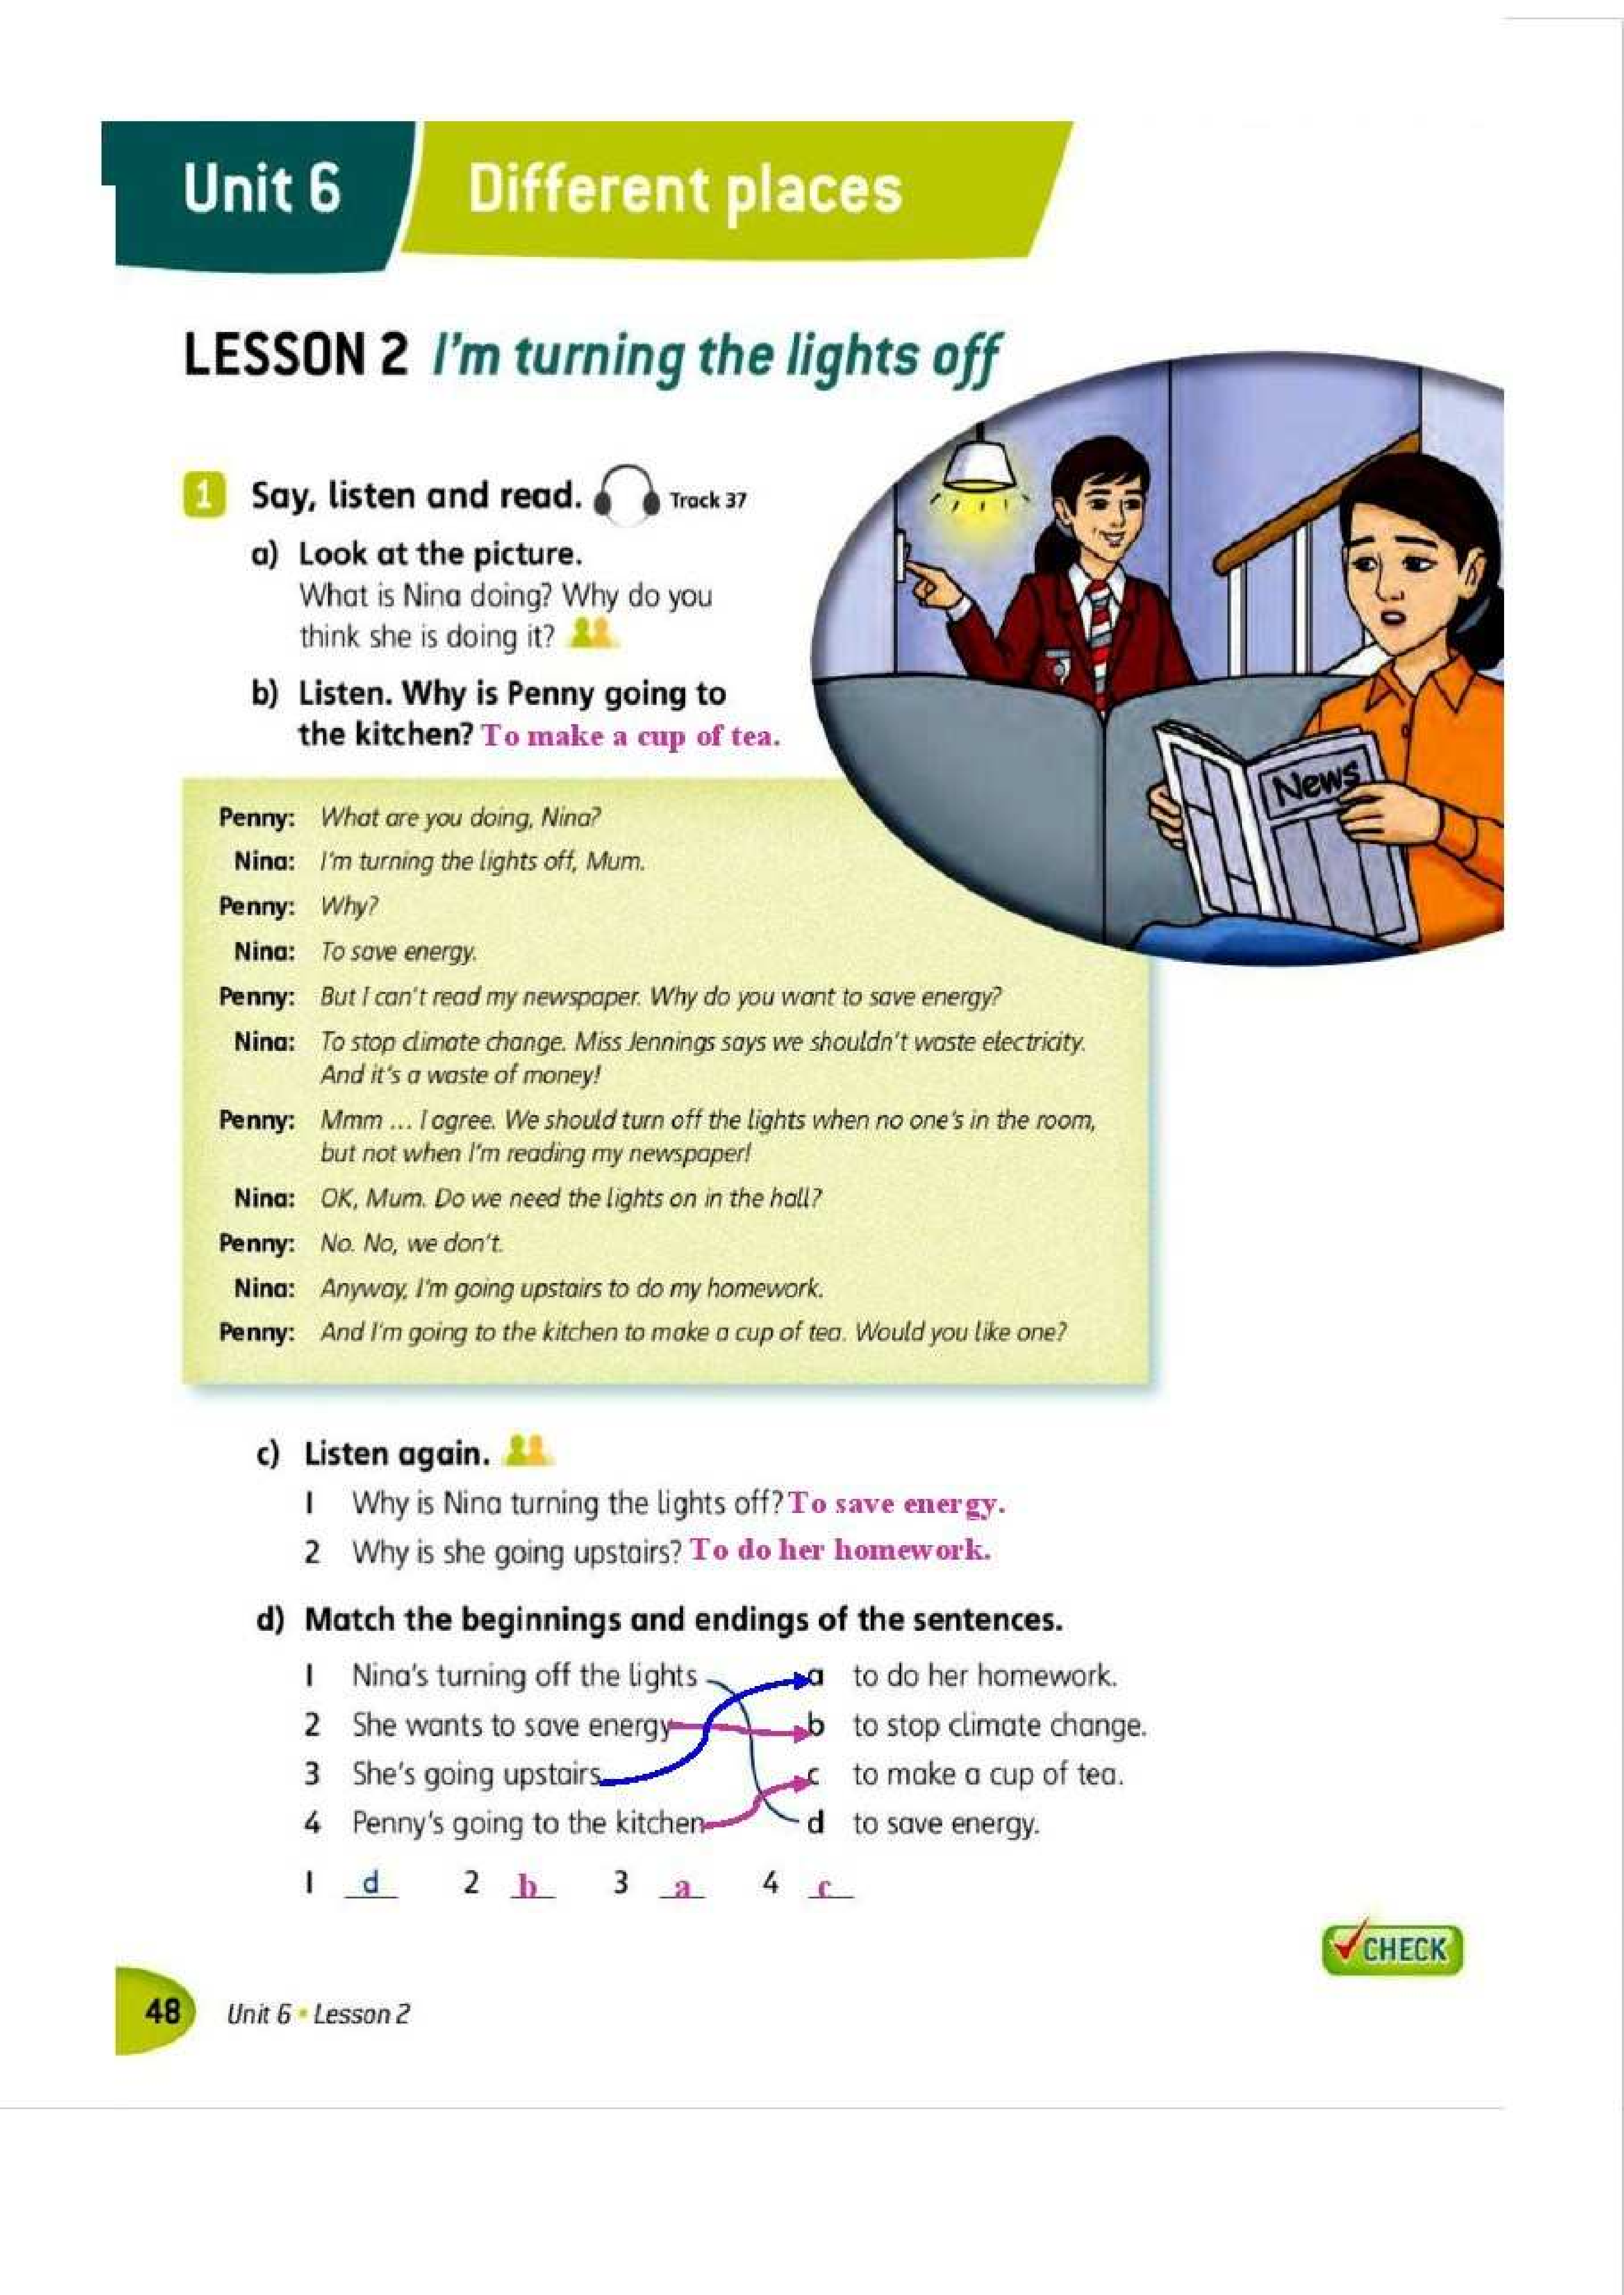 Unit 6 Different places
LESSON 2 I'm turning the lights off
1 Say, listen and read. Track 37
a) Look at the picture.
What is Nina doing? Why do you
think she is doing it?
b) Listen. Why is Penny going to
the kitchen? To make a cup of tea.
News
Penny: What are you doing, Nina?
Nina: I'm turning the lights off, Mum.
Penny: Why?
Nina: To save energy.
Penny: But I can't read my newspaper. Why do you want to save energy?
Nina: To stop climate change. Miss Jennings says we shouldn't waste electricity.
And it's a waste of money!
Penny: Mmm ... I agree. We should turn off the lights when no one's in the room,
but not when I'm reading my newspaper!
Nina: OK, Mum. Do we need the lights on in the hall?
Penny: No. No, we don't.
Nina: Anyway, I'm going upstairs to do my homework.
Penny: And I'm going to the kitchen to make a cup of tea. Would you like one?
c) Listen again.
1 Why is Nina turning the lights off? To save energy.
2 Why is she going upstairs? To do her homework.
d) Match the beginnings and endings of the sentences.
1 Nina's turning off the lights a to do her homework.
2 She wants to save energy b to stop climate change.
3 She's going upstairs c to make a cup of tea.
4 Penny's going to the kitchen d to save energy.
1 d 2 b 3 a 4 c
CHECK
48 Unit 6 • Lesson 2